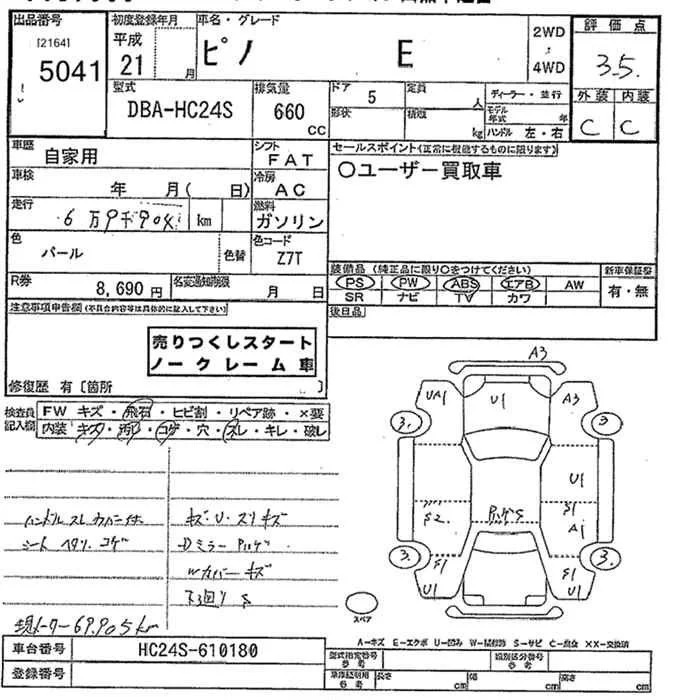 出品番号 初度登録年月 車名・グレード 評価点
[2164] 5041 平成 21 月 ピノ E 2WD・4WD 3.5
型式 DBA-HC24S 排気量 660 CC ドア 5 形状 定員 人 積載 kg ディーラー・並行 モデル年式 年 ハンドル 左・右 外装 C 内装 C
車歴 自家用 シフト FAT セールスポイント(正常に機能するものに限ります)
車検 年 月( 日) 冷房 AC 〇ユーザー買取車
走行 6万9千904 km 燃料 ガソリン
色 パール 色替 色コード Z7T
R券 8,690円 名変通知期限 月 日
装備品(純正品に限り〇をつけてください) 新車保証書
PS PW ABS エアB AW 有・無
SR ナビ TV カワ
後日品
注意事項申告欄(不具合内容等は具体的に記入して下さい)
売りつくしスタート
ノークレーム車
修復歴 有〔箇所 〕
検査員記入欄 FW キズ・飛石・ヒビ割・リペア跡・×要
内装 キズ・汚れ・コゲ・穴・スレ・キレ・破レ
ハンドルスレ カバー
シート ヘタリ コゲ
キズ・U・スリキズ
Dミラー
Wカバーキズ
下廻りS
現メーター69.905km
A3
UA1 U1 A3
3. 3
U1
S2. S1
A1
S
3. S1 S1 3.
U1 U1
スペア
A-キズ E-エクボ U-凹み W-補修跡 S-サビ C-腐食 ××-交換済
車台番号 HC24S-610180 型式指定番号 参考 類別区分番号 参考
登録番号 車庫証明用 参考 長さ cm 幅 cm 高さ cm